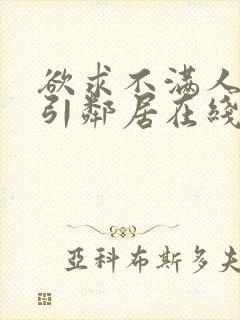 欲求不满人
引鄰居在綫
亞科布斯多夫